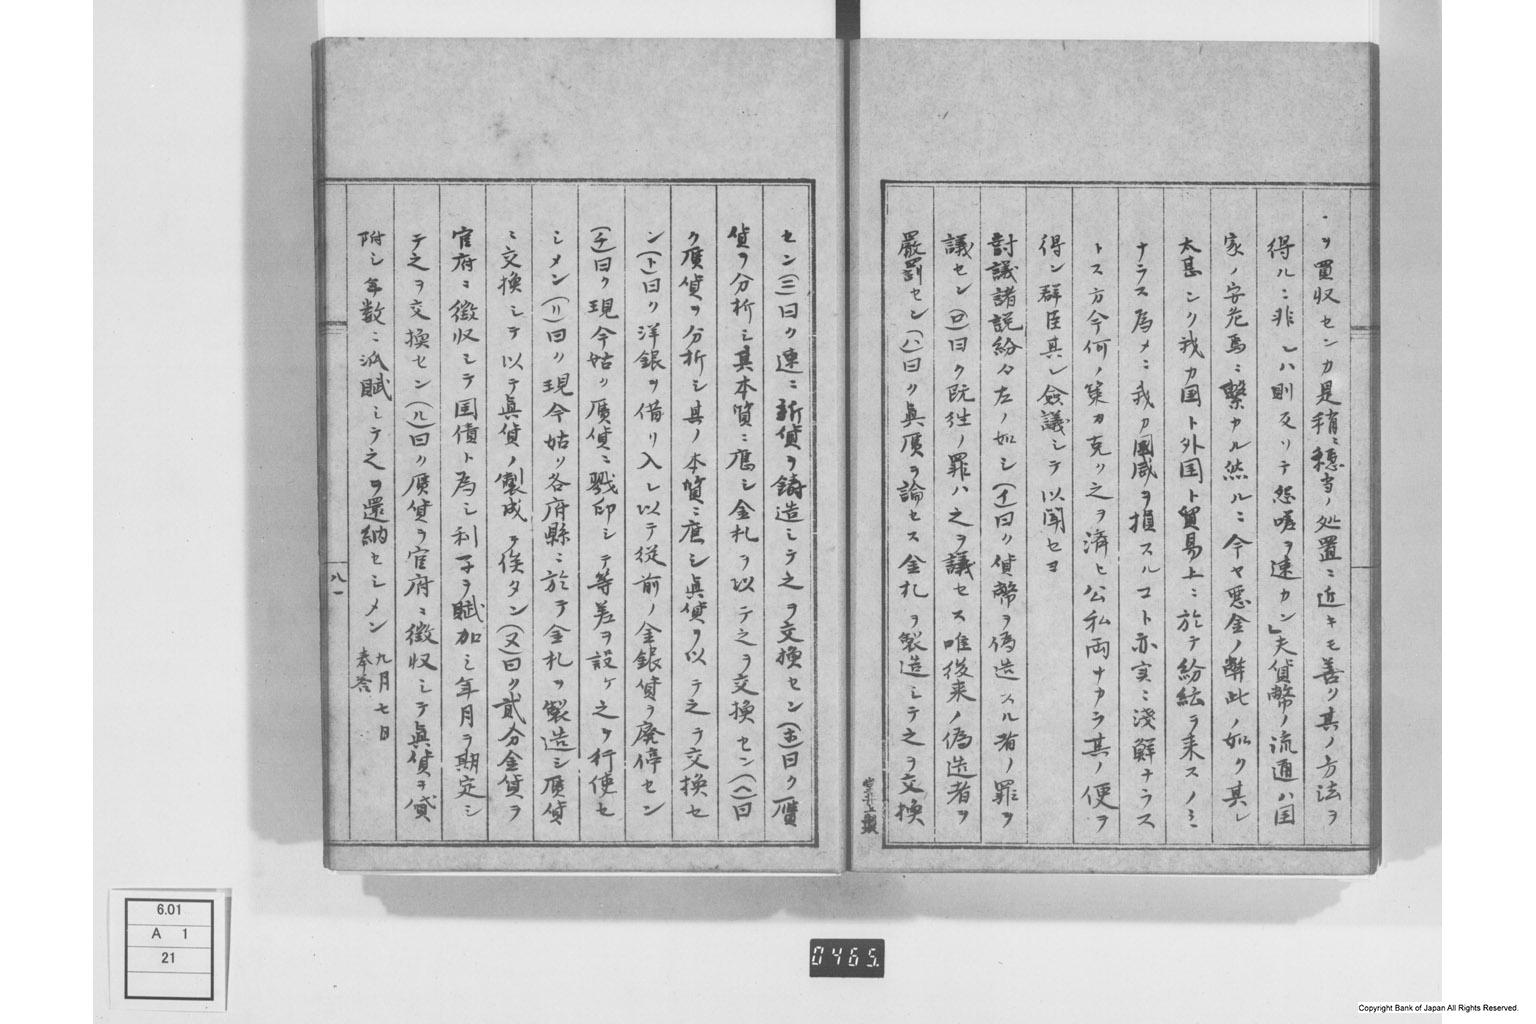 ヲ買収センカ是稍ニ穏当ノ処置ニ近キモ善リ其ノ方法ヲ
得ルニ非レハ則反リテ怨嗟ヲ速カン」夫貨幣ノ流通ハ国
家ノ安危焉ニ繋カル然ルニ今ヤ悪金ノ弊此ノ如ク其レ
太甚シク我カ国ト外国ト貿易上ニ於テ紛紜ヲ来スノミ
ナラス為メニ我カ國威ヲ損スルコト亦実ニ淺鮮ナラス
トス方今何ノ策カ克ク之ヲ済ヒ公私両ナカラ其ノ便ヲ
得ン群臣其レ僉議シテ以聞セヨ
討議諸説紛々左ノ如シ(イ)曰ク貨幣ヲ偽造スル者ノ罪ヲ
議セン(ロ)曰ク既往ノ罪ハ之ヲ議セス唯後来ノ偽造者ヲ
嚴罰セン(ハ)曰ク眞贋ヲ論セス金札ヲ製造シテ之ヲ交換
セン(ニ)曰ク速ニ新貨ヲ鋳造シテ之ヲ交換セン(ホ)曰ク贋
貨ヲ分析シ其本質ニ應シ金札ヲ以テ之ヲ交換セン(ヘ)曰
ク贋貨ヲ分析シ其ノ本質ニ應シ眞貨ヲ以テ之ヲ交換セ
ン(ト)曰ク洋銀ヲ借リ入レ以テ従前ノ金銀貨ヲ廃停セン
(チ)曰ク現今姑ク贋貨ニ戳印シテ等差ヲ設ケ之ヲ行使セ
シメン(リ)曰ク現今姑ク各府縣ニ於テ金札ヲ製造シ贋貨
ニ交換シテ以テ眞貨ノ製成ヲ俟タン(ヌ)曰ク貳分金貨ヲ
官府ニ徴収シテ国債ト為シ利子ヲ賦加シ年月ヲ期定シ
テ之ヲ交換セン(ル)曰ク贋貨ヲ官府ニ徴収シテ眞貨ヲ貸
附シ年数ニ派賦シテ之ヲ還納セシメン 九月七日
奉答
八一
6.01
A 1
21
0465
Copyright Bank of Japan All Rights Reserved.